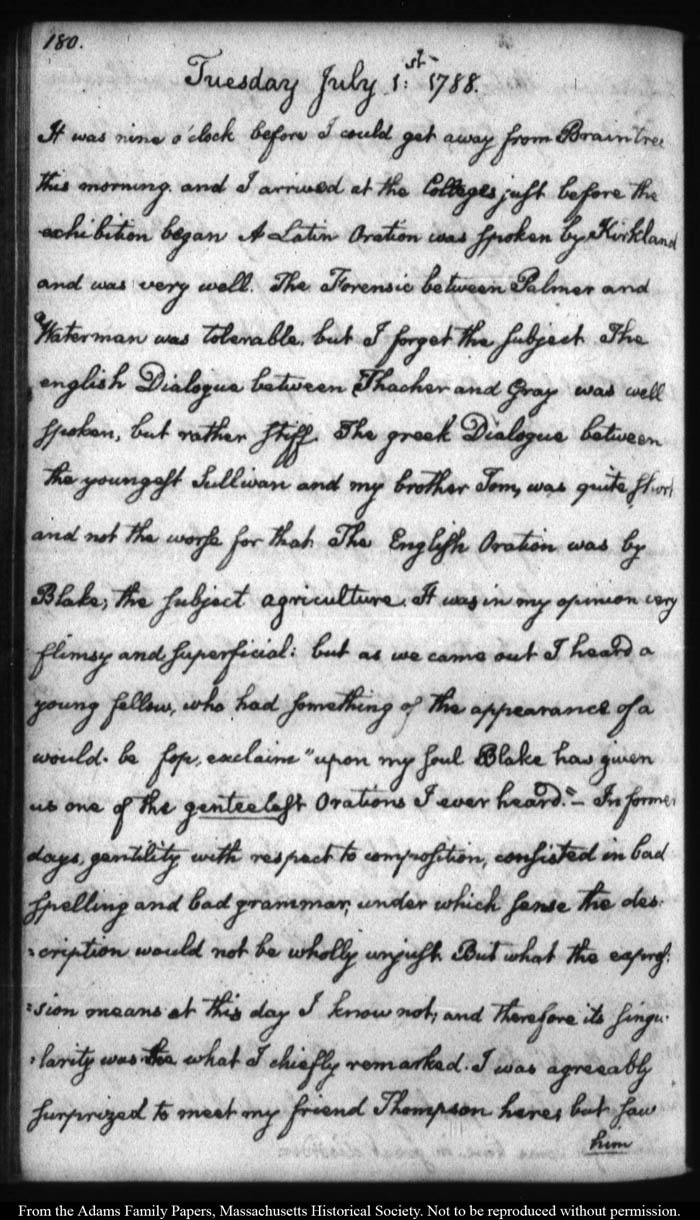 180.
Tuesday July 1:st 1788.
It was nine o'clock before I could get away from Braintree
this morning. and I arrived at the Colleges just before the
exhibition began A Latin Oration was spoken by Kirkland
and was very well. The Forensic between Palmer and
Waterman was tolerable. but I forget the subject The
english Dialogue between Thacher and Gray was well
spoken, but rather stiff. The greek Dialogue between
the youngest Sullivan and my brother Tom, was quite short
and not the worse for that The English Oration was by
Blake; the subject agriculture. It was in my opinion very
flimsy and superficial: but as we came out I heard a
young fellow, who had something of the appearance of a
would-be fop, exclaim "upon my soul Blake has given
us one of the genteelest Orations I ever heard."— In former
days, gentility with respect to composition, consisted in bad
spelling and bad grammar; under which sense the des:
:cription would not be wholly unjust. But what the expres:
:sion means at this day I know not; and therefore its singu:
:larity was the what I chiefly remarked. I was agreeably
surprized to meet my friend Thompson here; but saw
him
From the Adams Family Papers, Massachusetts Historical Society. Not to be reproduced without permission.